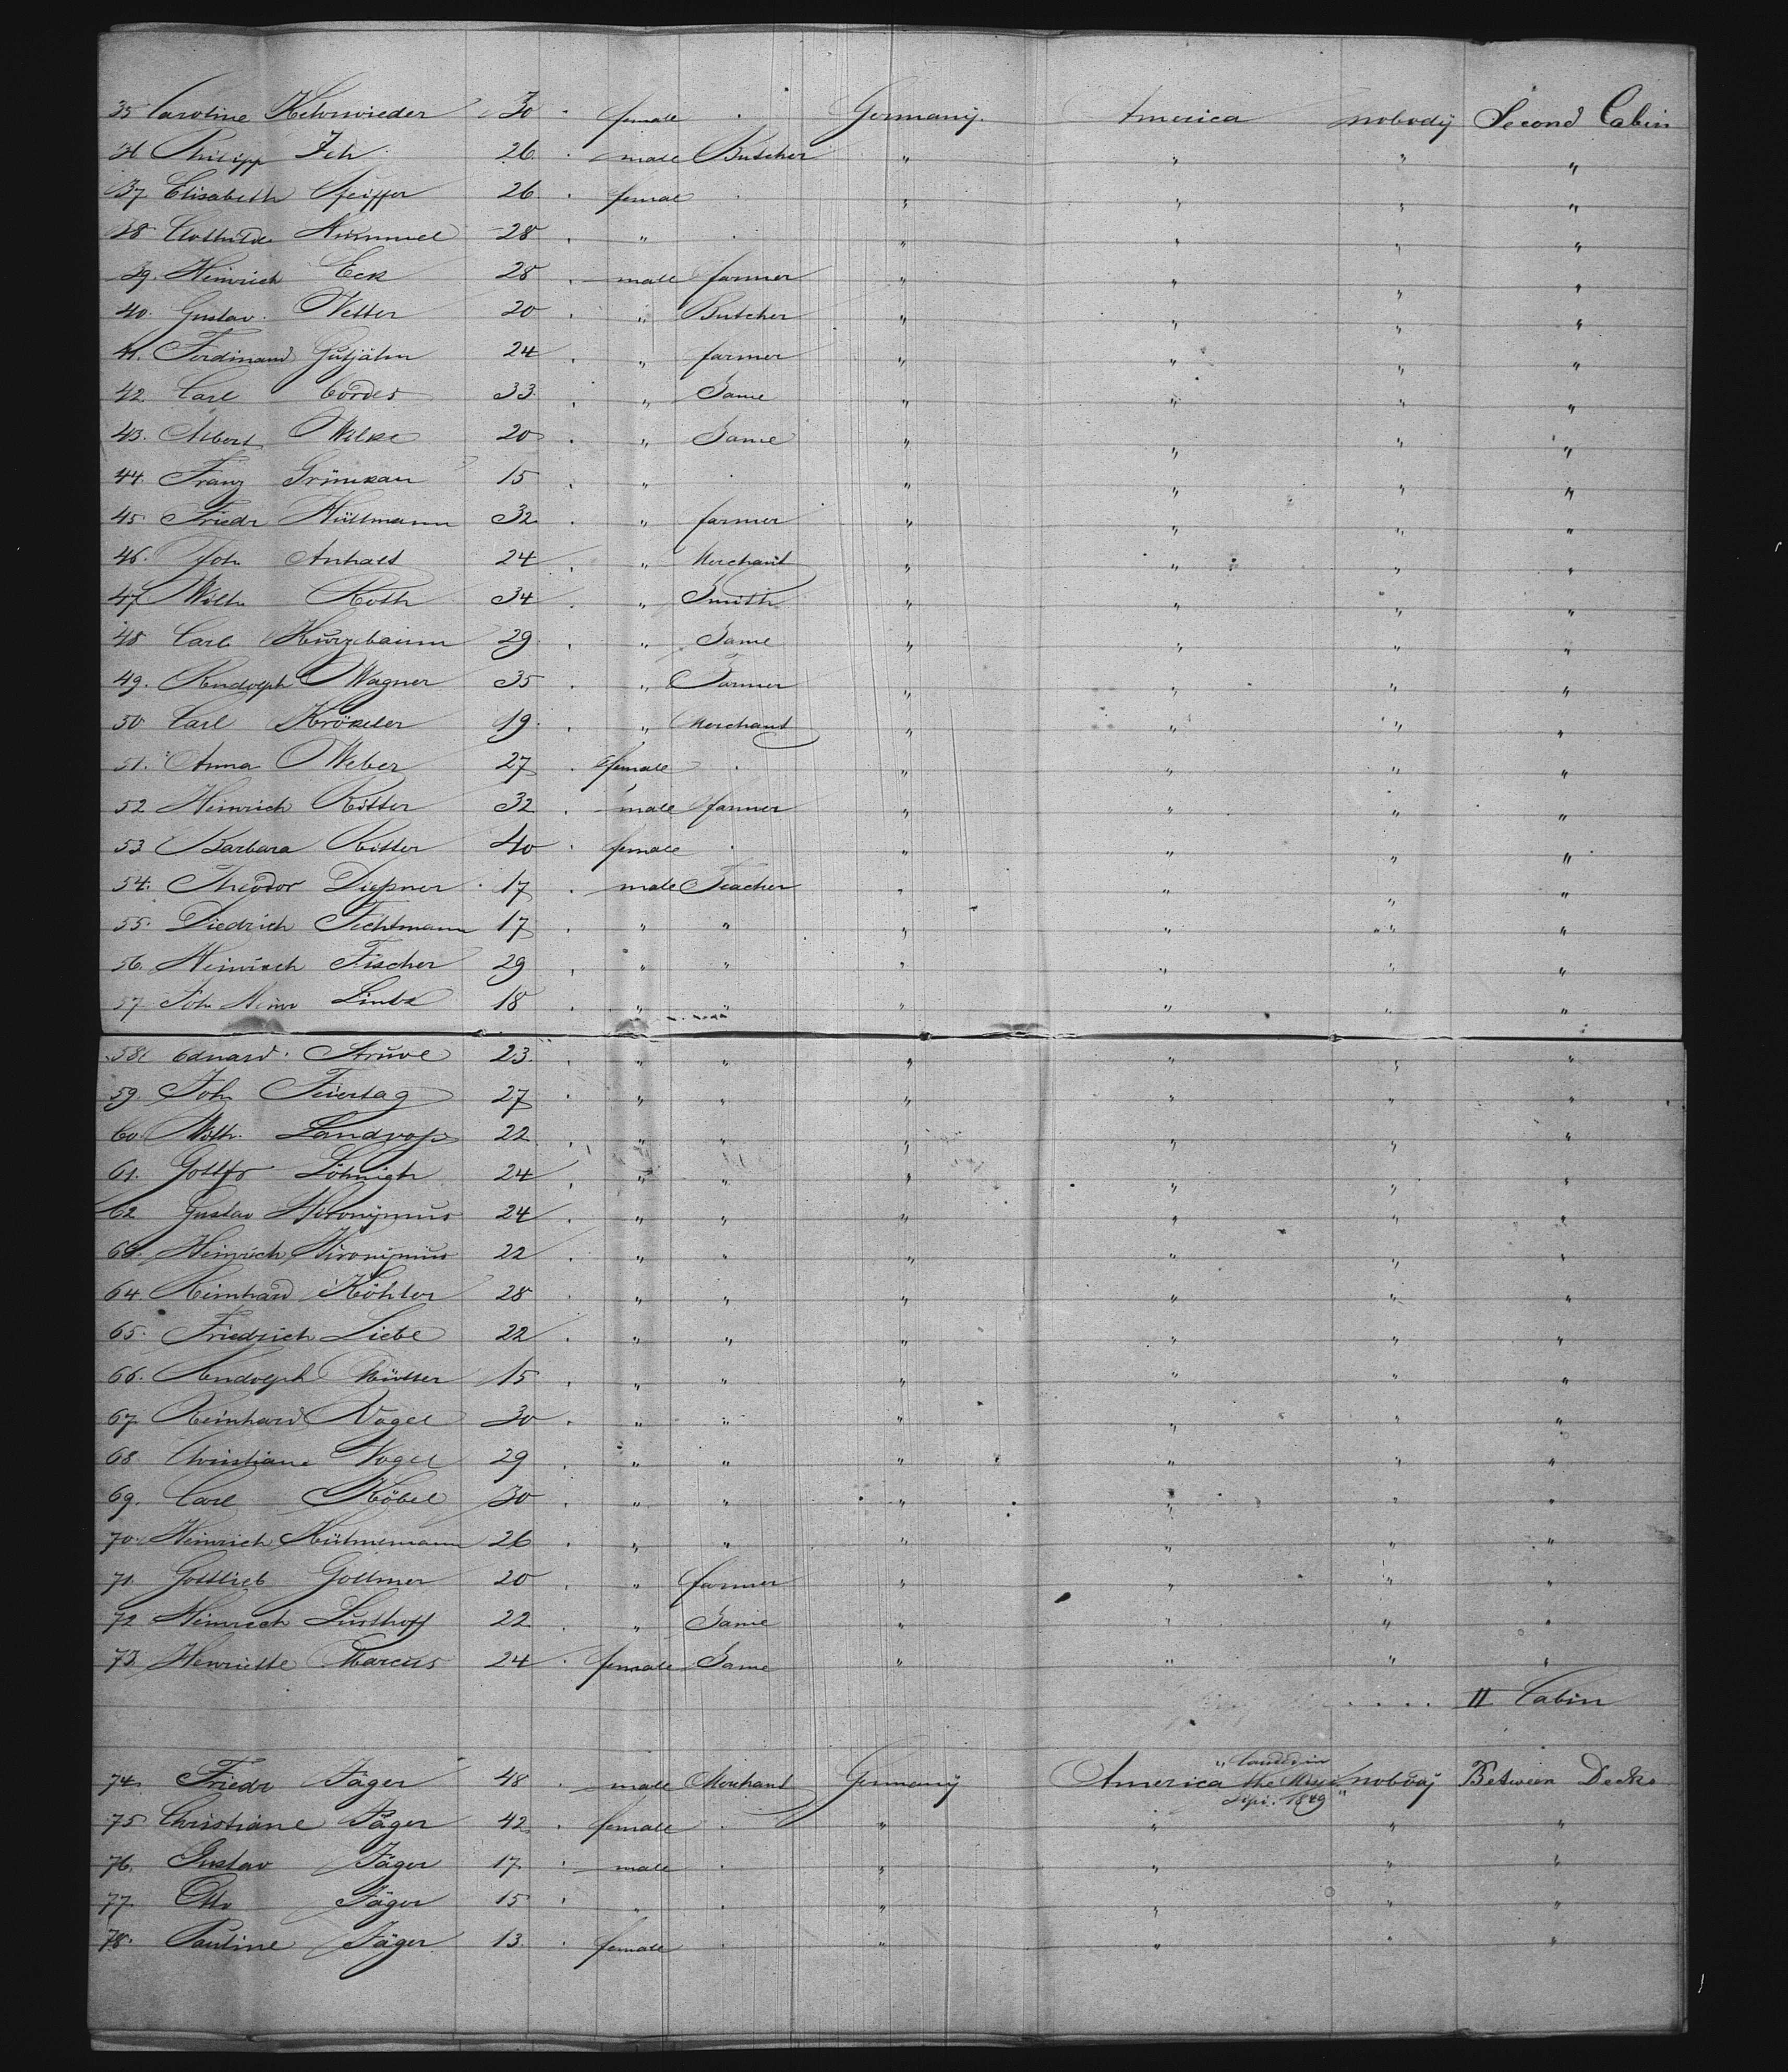 35 Caroline Kehrwieder 30 . female . Germany. America nobody Second Cabin
36 Philipp Ich 26 . male Butcher " " " "
37 Elisabeth Pfeiffer 26 . female . " " " "
38 Clothilde Kümmel 28 . " . " " " "
39. Heinrich Eck 28 . male farmer " " " "
40. Gustav Vetter 20 . " Butcher " " " "
41. Ferdinand Gutjahr 24 . " farmer " " " "
42 Carl Cordes 33 . " Same " " " "
43. Albert Wilke 20 . " Same " " " "
44. Franz 15 . " . " " " "
45 Friedr Hüllmann 32 . " farmer " " " "
46. Joh. Anhalt 24 . " Merchant " " " "
47 Wilh. Roth 34 . " Smith " " " "
48 Carl Kurzbaum 29 . " Same " " " "
49. Rudolph Wagner 35 . " Farmer " " " "
50 Carl 19 . " Merchant " " " "
51. Anna Weber 27 . female . " " " "
52 Heinrich Ritter 32 . male farmer " " " "
53 Barbara Ritter 40 . female . " " " "
54. Theodor 17 . male Teacher " " " "
55. Diedrich Fechtmann 17 . " " " " " "
56. Heinrich Fischer 29 . " " " " " "
57. Joh. Heinr 18 . " " " " " "
58 Eduard Struve 23 . " " " " " "
59. Joh. Feiertag 27 . " " " " " "
60. Wilh. Landvoß 22 . " " " " " "
61. Gottfr Löhnigh 24 . " " " " " "
62 Gustav Hieronymus 24 . " " " " " "
63. Heinrich Hieronymus 22 . " " " " " "
64. Reinhard Köhler 28 . " " " " " "
65. Friedrich Liebe 22 . " " " " " "
66. Rudolph Müller 15 . " " " " " "
67. Reinhard Vogel 30 . " " " " " "
68. Christiane Vogel 29 . " " " " " "
69. Carl Köbel 30 . " " " " " "
70. Heinrich Kühnemann 26 . " " " " " "
71. Gottlieb Gollmer 20 . " farmer " " " "
72 Heinrich Lusthoff 22 . " Same " " " "
73. Henriette Marcus 24 . female Same " " " "
. . . . II Cabin
74. Friedr Jäger 48 . male Merchant Germany America " landed in the Missis sipi. 1849 " nobody Between Decks
75 Christiane Jäger 42 . female . " " " "
76. Gustav Jäger 17 . male . " " " "
77. Otto Jäger 15 . " . " " " "
78. Pauline Jäger 13 . female . " " " "